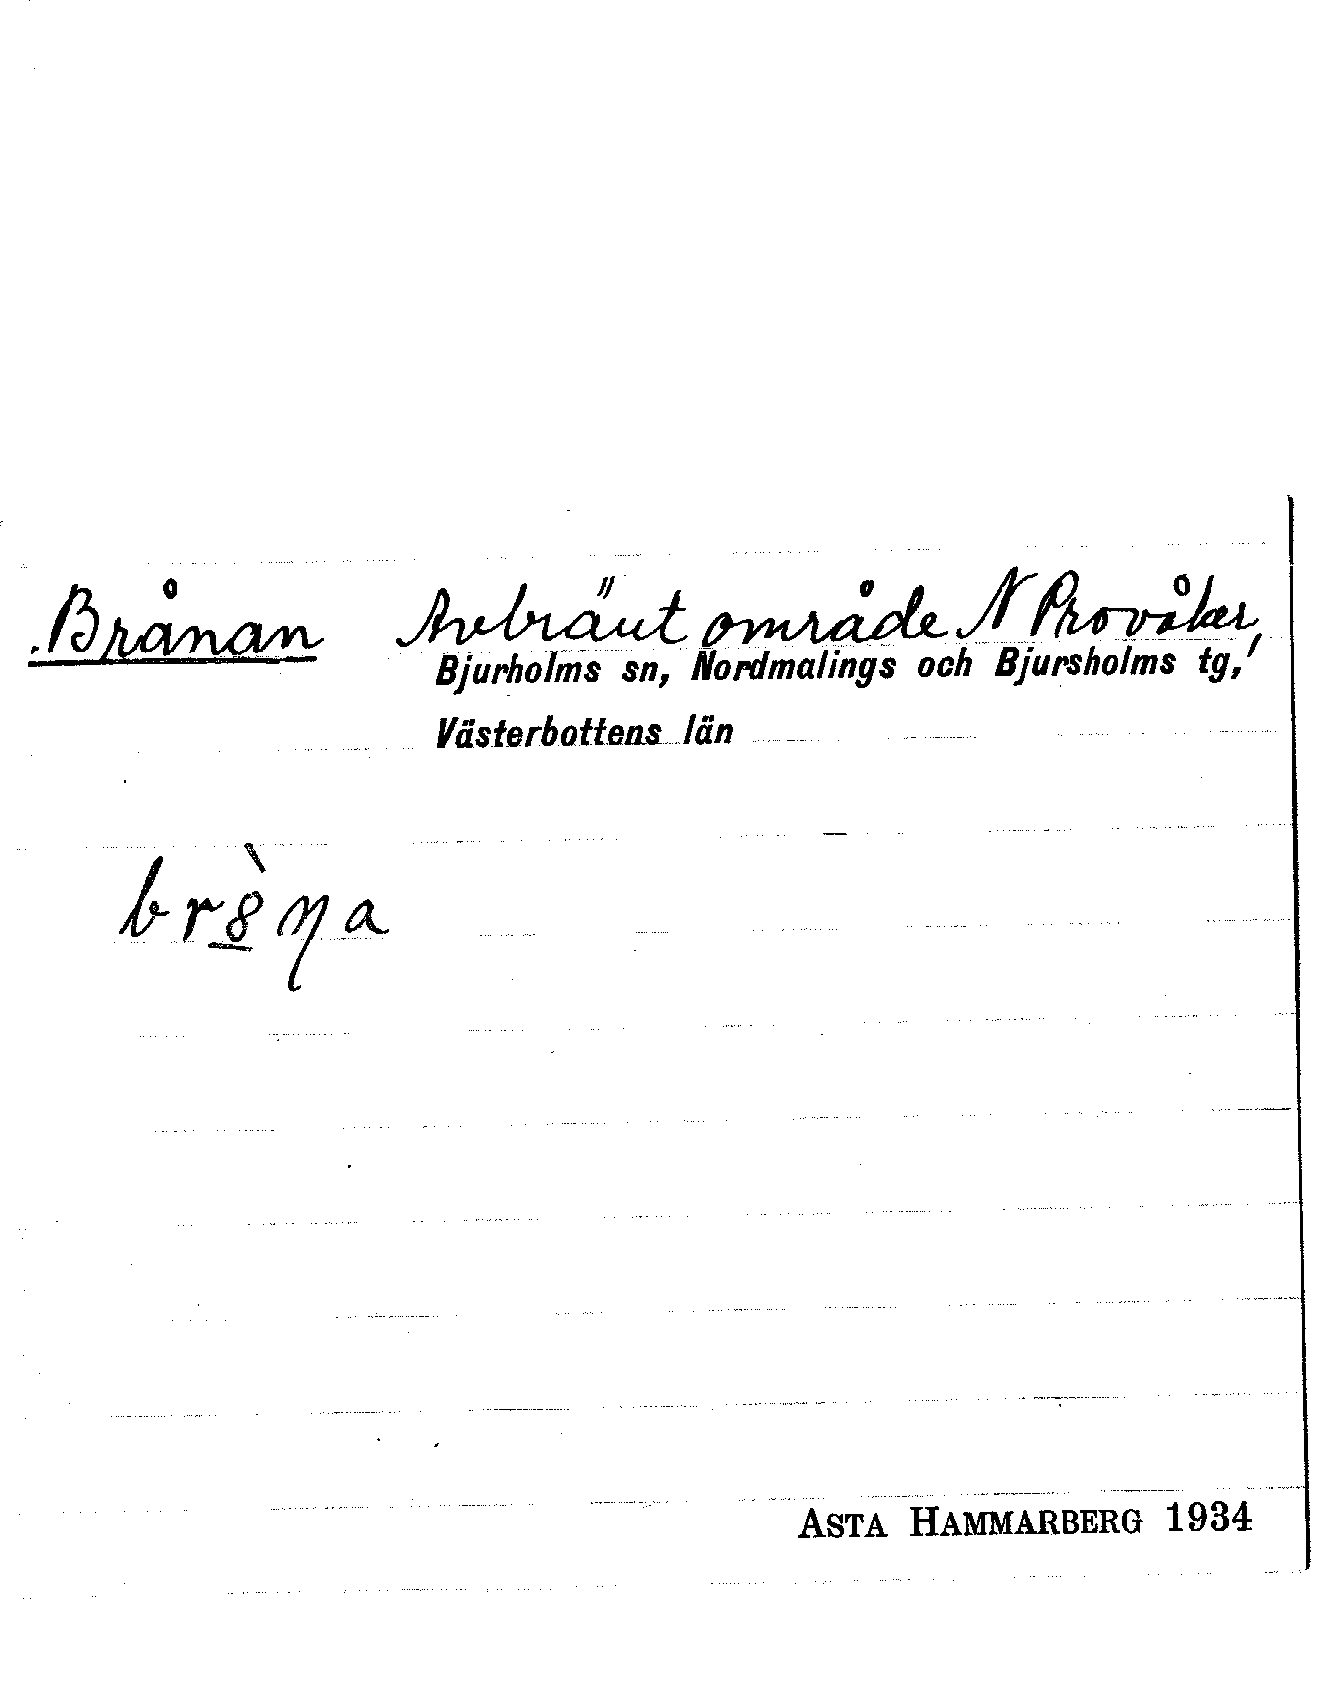 Brånan Avbränt område N Provåker,
Bjurholms sn, Nordmalings och Bjursholms tg,
Västerbottens län
ASTA HAMMARBERG 1934